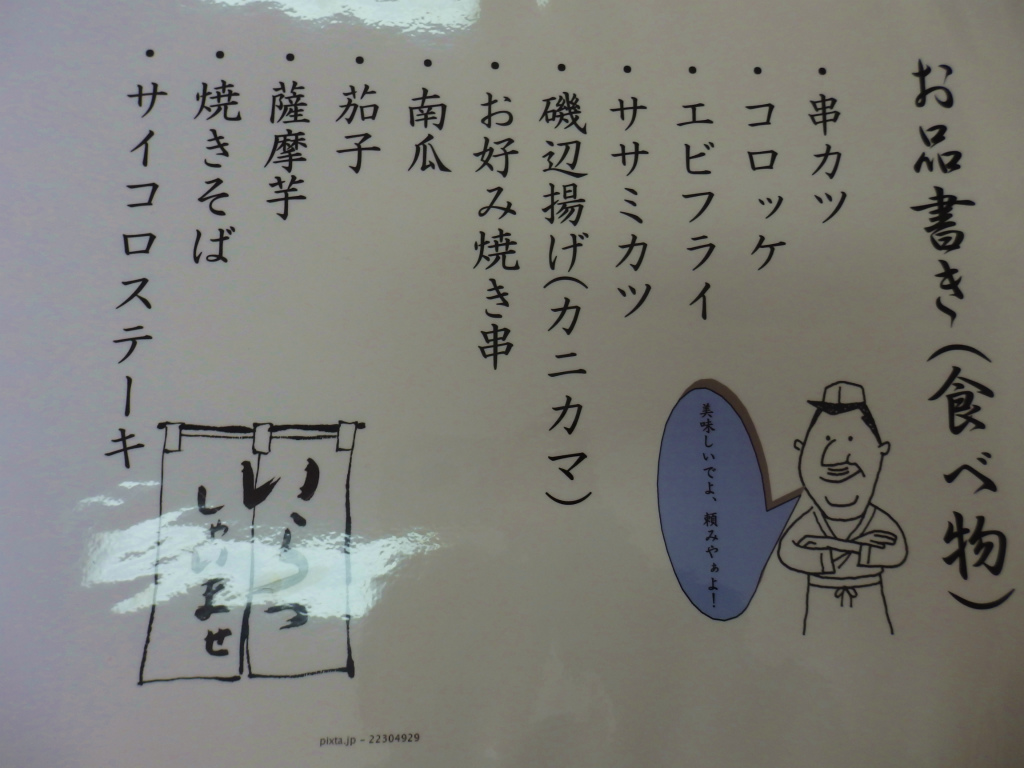 お品書き(食べ物)
・串カツ
・コロッケ
・エビフライ
・ササミカツ
・磯辺揚げ(カニカマ)
・お好み焼き串
・南瓜
・茄子
・薩摩芋
・焼きそば
・サイコロステーキ
美味しいでよ、頼みやぁよ!
いらっ
しゃいませ
pixta.jp - 22304929